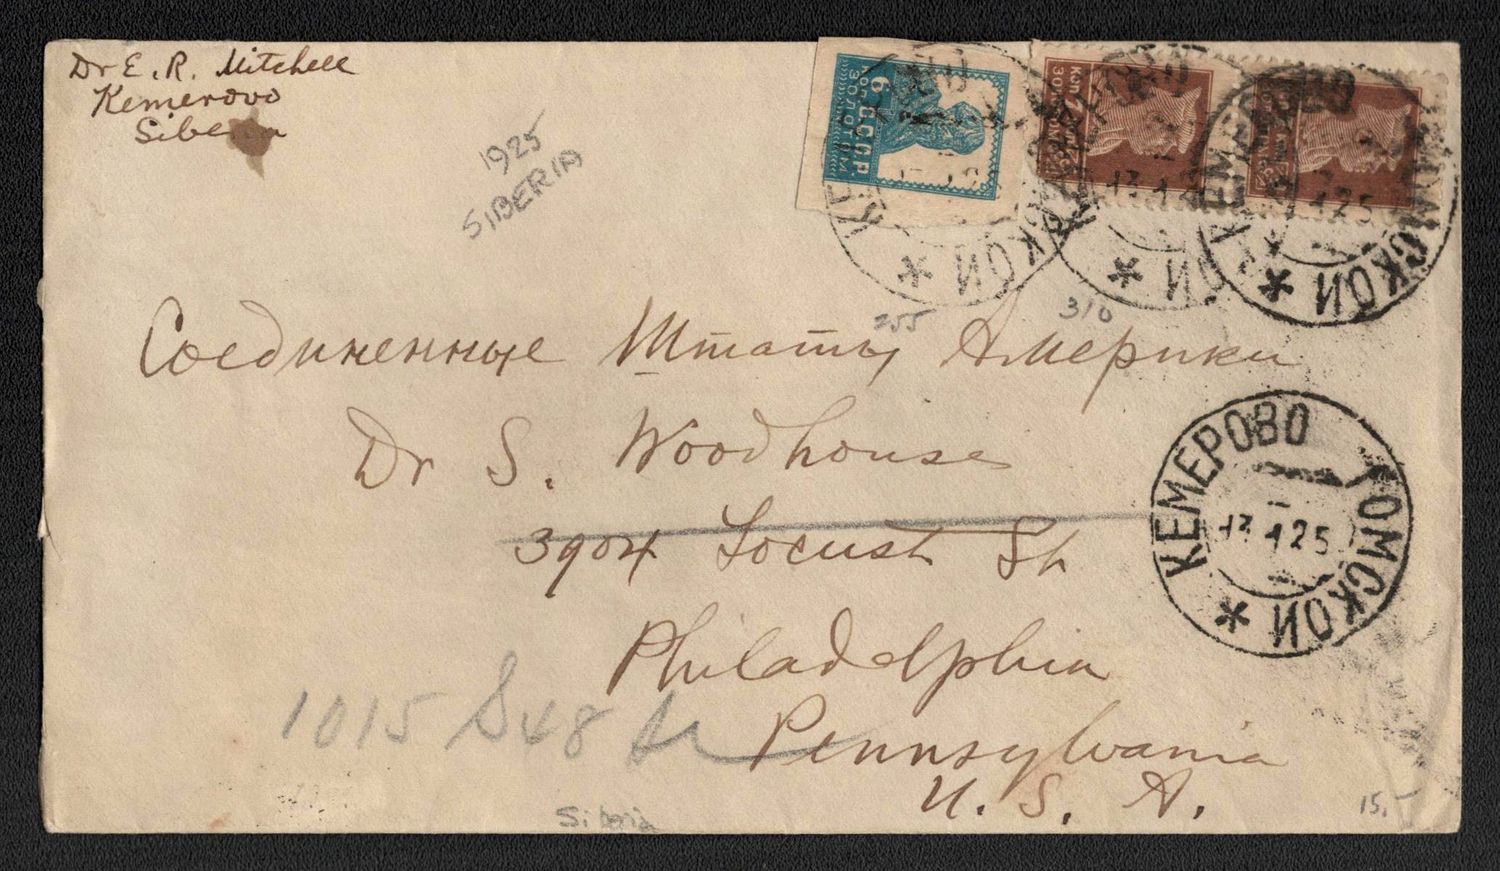 Dr E. R. Mitchell
Kemerovo
Siberia
1925
SIBERIA
6 КОП. СССР
ЗОЛОТОМ
КОП 7
КЕМЕРОВО ТОМСКОЙ
255
310
Соединенные Штаты Америки
Dr S. Woodhouse
3904 Locust St
Philadelphia
Pennsylvania
U. S. A.
КЕМЕРОВО ТОМСКОЙ
13 1 25
1015 S 48 St
Siberia
15.-